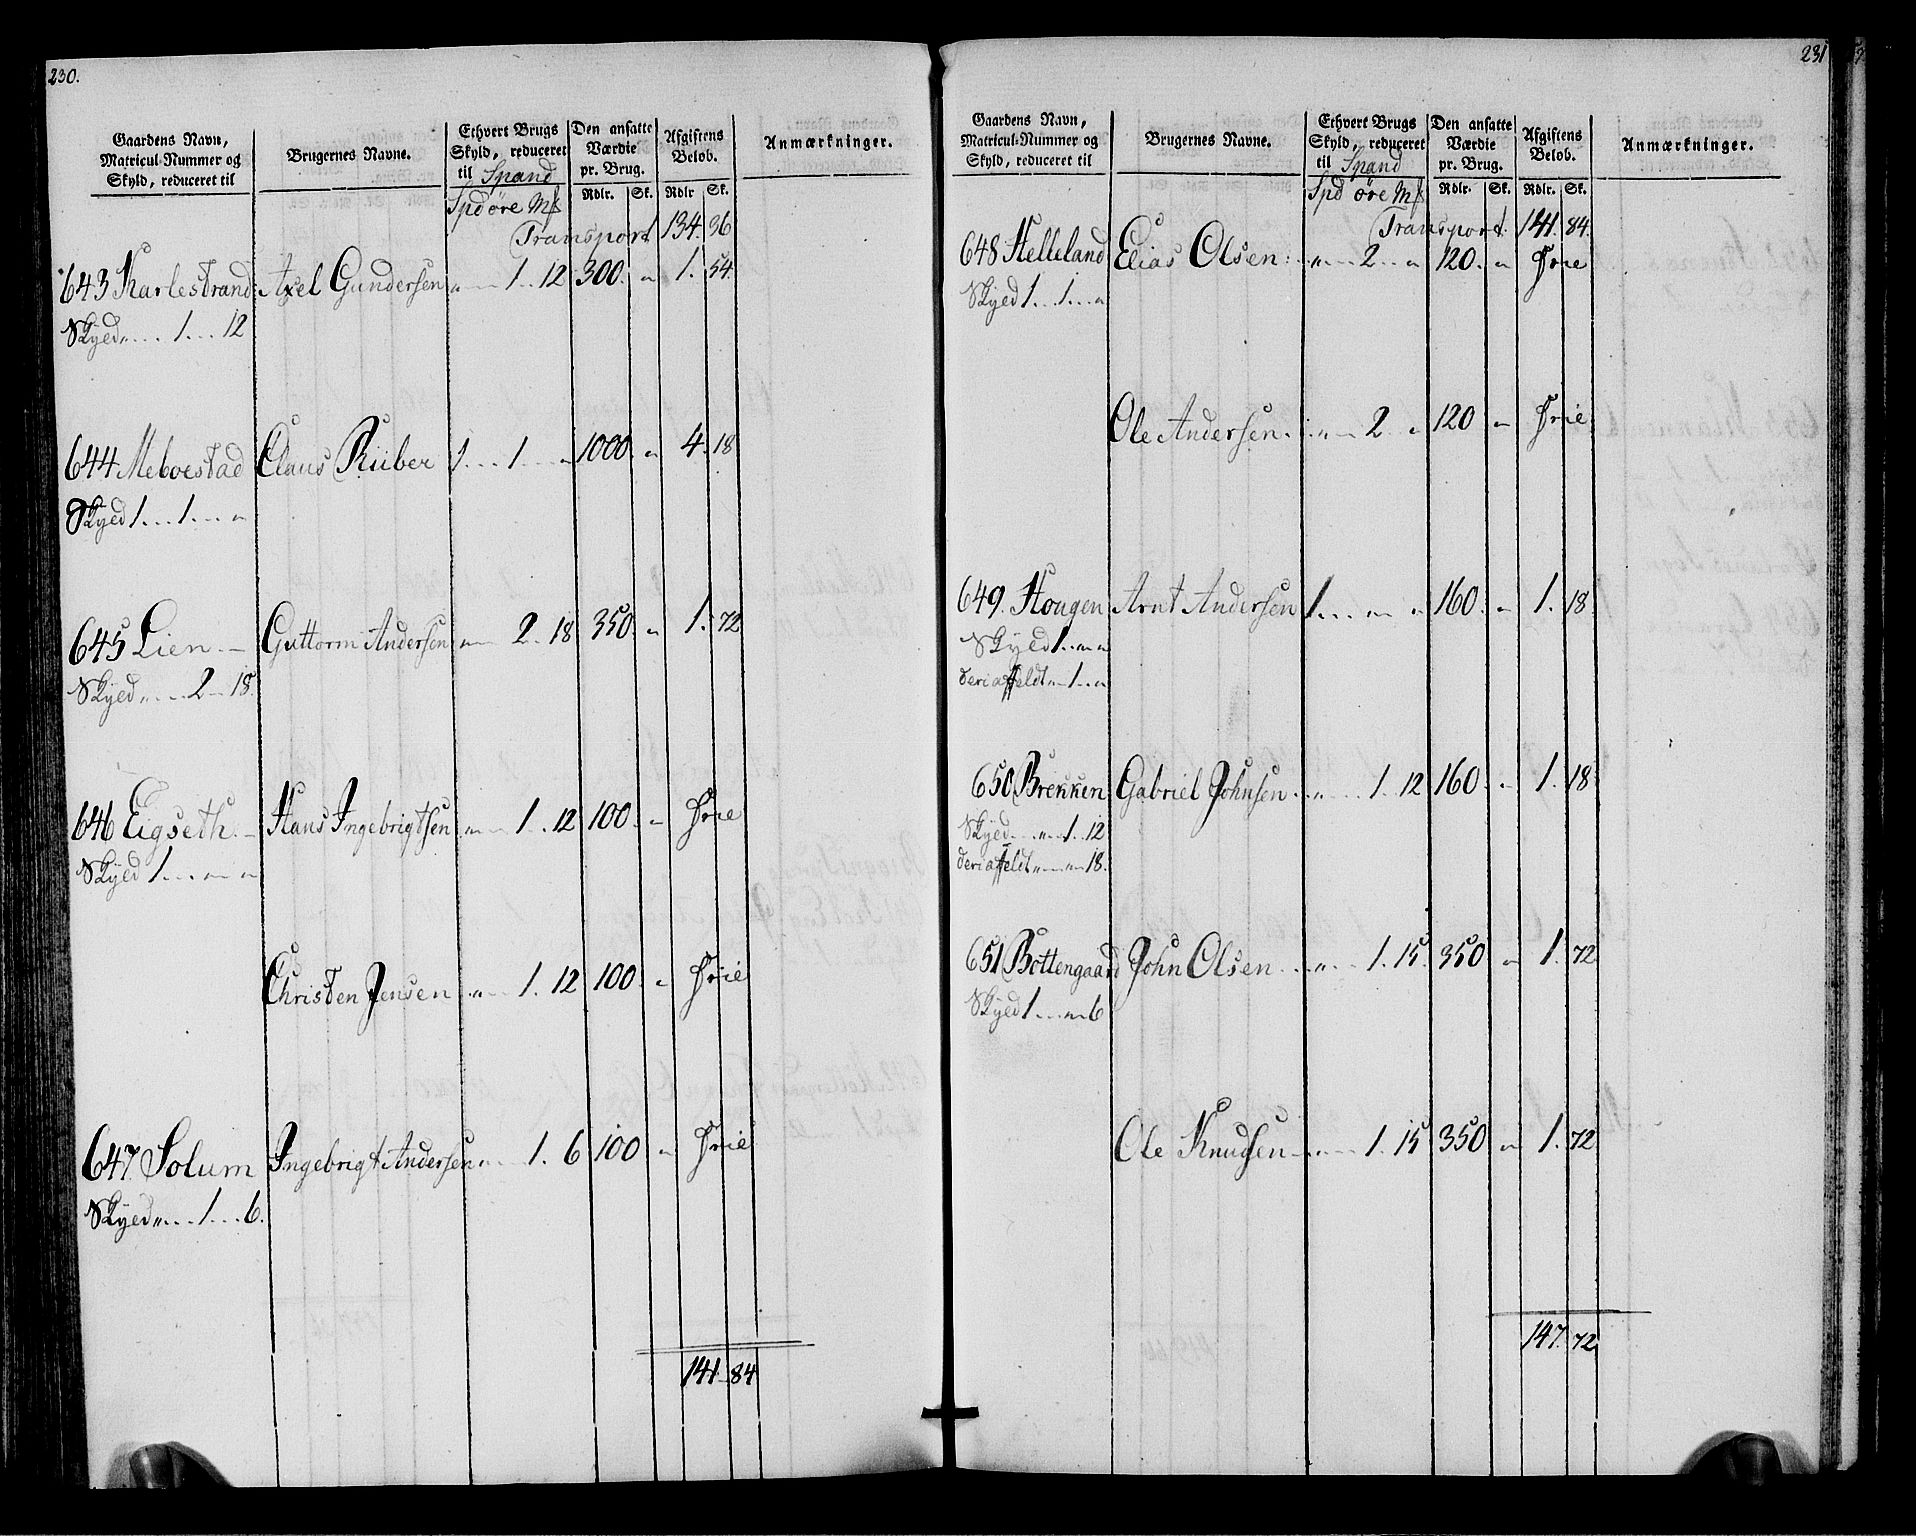 230.
Gaardens Navn, Matricul-Nummer og Skyld, reduceret til
Brugernes Navne.
Ethvert Brugs Skyld, reduceret til Spand
Den ansatte Værdie pr. Brug.
Afgiftens Beløb.
Anmærkninger.
Spd øre Mk
Rdlr. Sk. Rdlr Sk.
Transport 134. 36
643 Karlestrand Axel Gundersen „ 1 12 300. „ 1. 54
Skyed „ 1 12
644 Meboestad Claus Riiber 1 1 „ 1000. „ 4. 18
Skyed 1 1 „
645 Lien Guttorm Andersen „ 2. 18 350. „ 1. 72
Skyed „ 2 18.
646 Eigseth Hans Ingebrigtsen „ 1 12 100. „ Frie
Skyed 1 „ „
Christen Jensen „ 1. 12 100 „ Frie
647. Solum Ingebrigt Andersen „ 1. 6 100 „ Frie
Skyed „ 1 6.
141 84
231
Gaardens Navn, Matricul-Nummer og Skyld, reduceret til
Brugernes Navne.
Ethvert Brugs Skyld, reduceret til Spand
Den ansatte Værdie pr. Brug.
Afgiftens Beløb.
Anmærkninger.
Spd øre Mk
Rdlr. Sk. Rdlr. Sk.
Transport 141. 84.
648 Helleland Elias Olsen „ 2 „ 120. „ Frie
Skyed 1 1 „
Ole Andersen „ 2. „ 120 „ Frie
649. Hougen Arnt Andersen 1 „ „ 160. „ 1. 18
Skyld 1 „ „
deriaffeldt „ 1 „
650 Brekken Gabriel Johnsen „ 1. 12 160. „ 1. 18
Skyed „ 1 12
deriaffeldt „ „ 18.
651 Bottengaard John Olsen „ 1. 15 350 „ 1. 72
Skyed 1 „ 6
Ole Knudsen „ 1. 15 350 „ 1. 72
147. 72